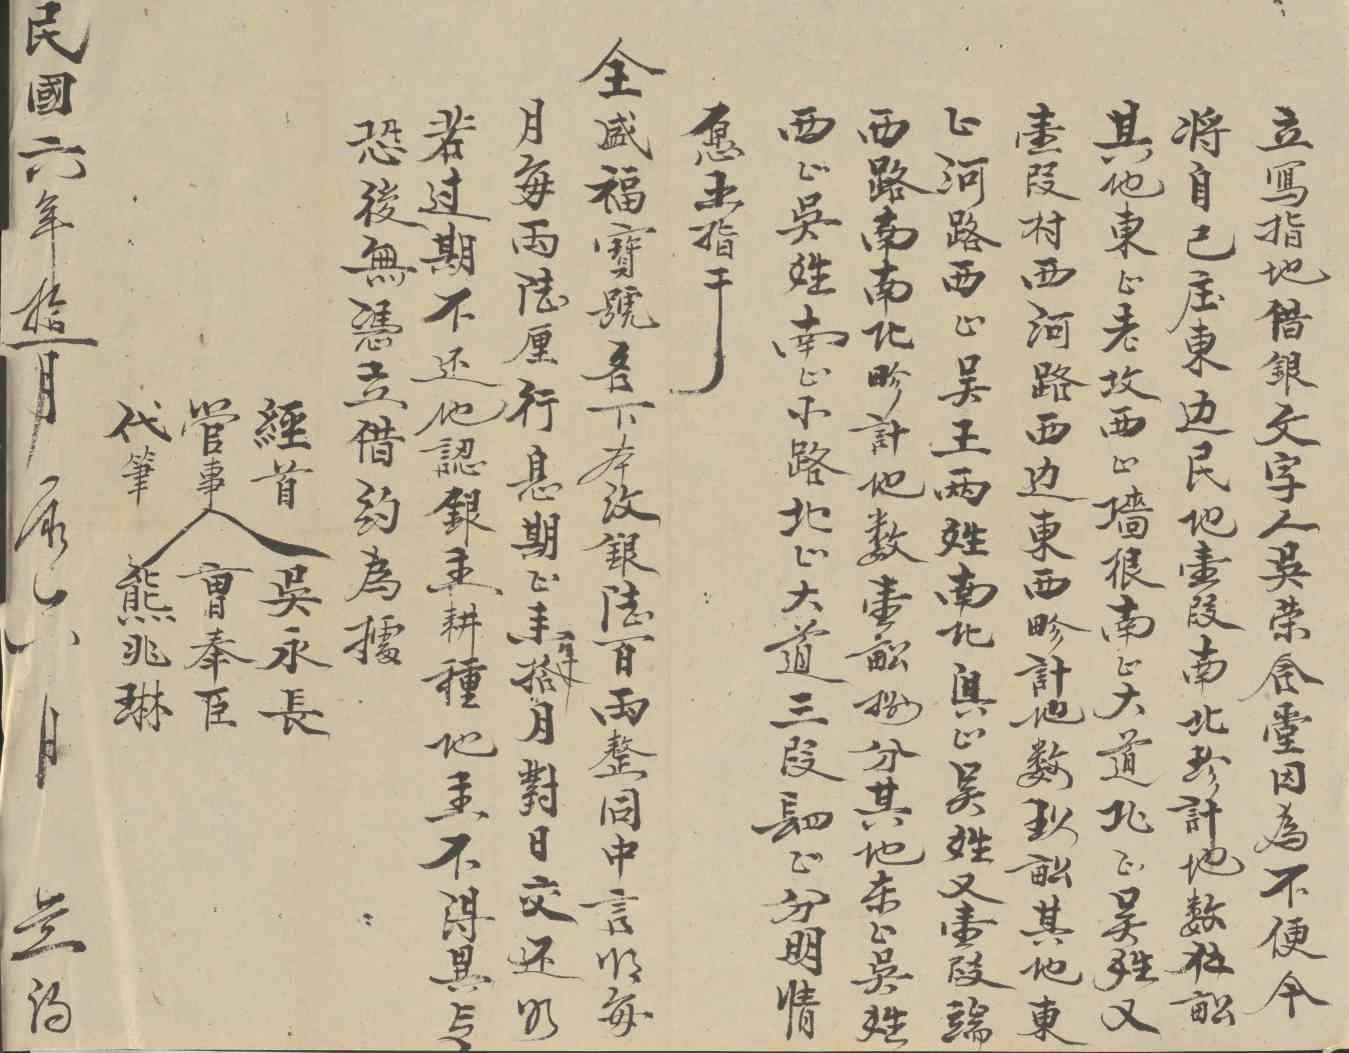 立寫指地借銀文字人吳荣合堂因為不便今
將自己庄東边民地壹段南北畛計地数伍畝
其地東止老坟西止墻根南止大道北止吴姓又
壹段村西河路西边東西畛計地数玖畝其地東
止河路西止吴王兩姓南北具止吴姓又壹段端
西路南南北畛計地数壹畝捌分其地东止吴姓
西止吳姓南止小路北止大道三段四止分明情
愿出指于
全盛福寶號名下本紋銀陸百兩整同中言明每
月每兩陸厘行息期止来年拾月對日交还以
若过期不还地認銀主耕種地主不得異言
恐後無憑立借約為據
經首 吳永長
管事人 曹奉臣
代筆 熊兆琳
民國六年拾一月 初六日 立約